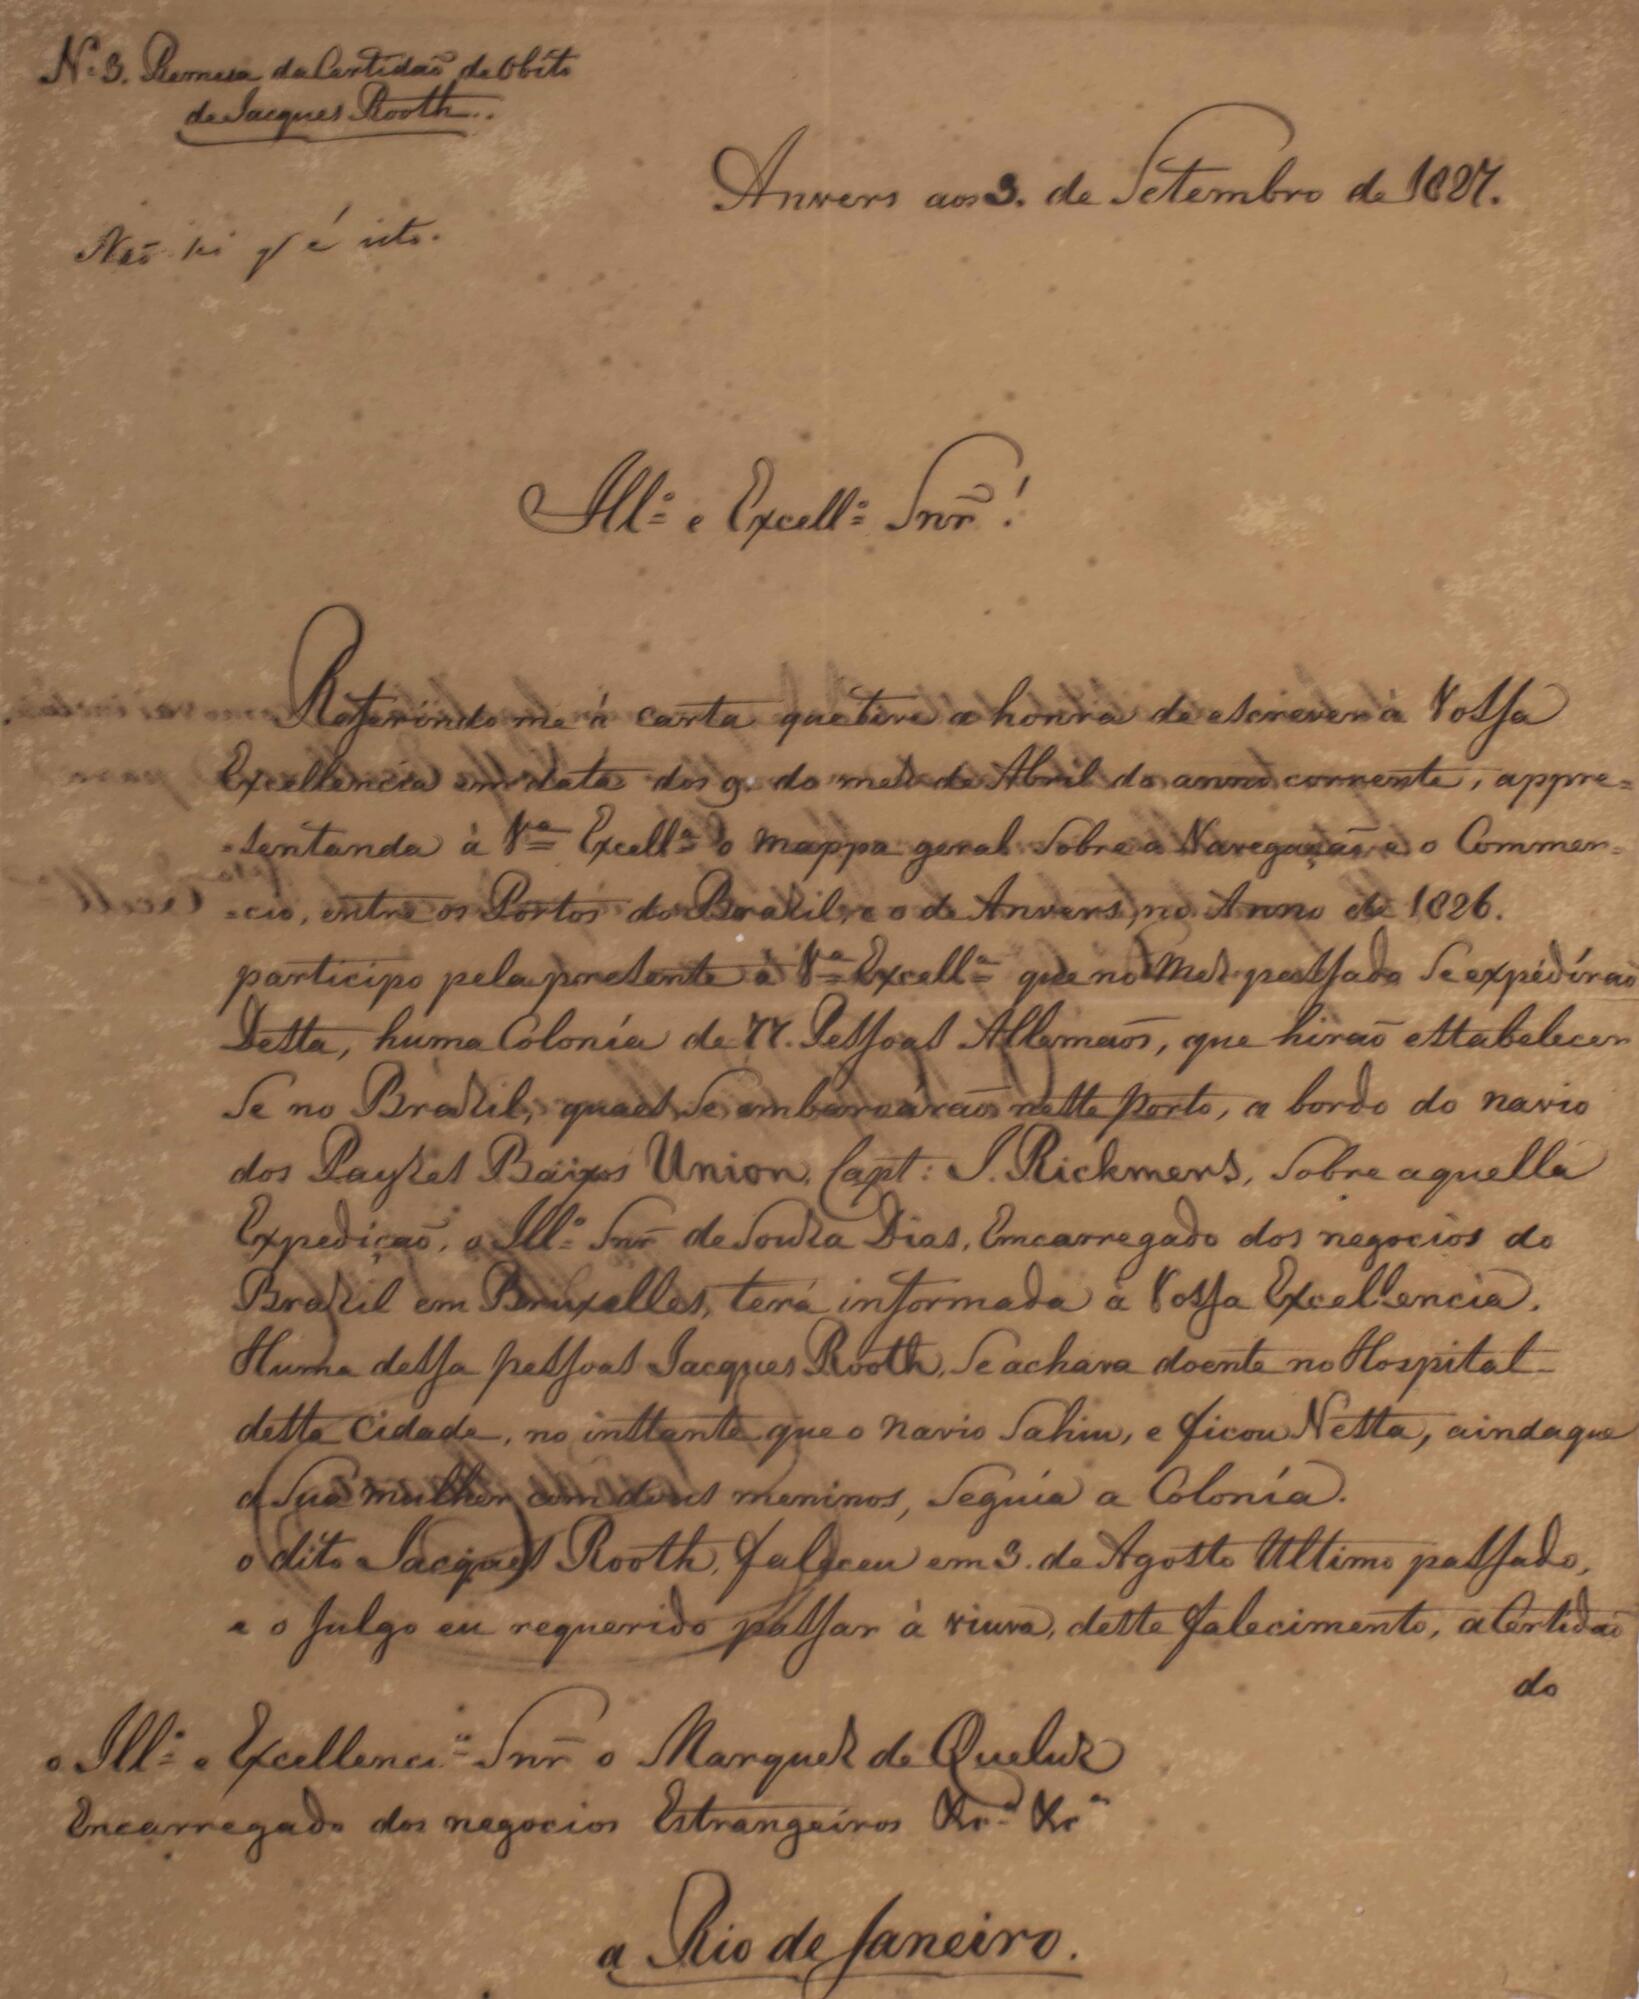 Nº 3. Remessa da Certidaõ de Obito
de Jacques Rooth.
Anvers aos 3. de Setembro de 1827.
Naõ é isto.
Ill.º e Excell.º Snr̃!
Referindo me á carta que tive a honra de escrever à Vossa
Excellencia em data dos 9. do mes de Abril do anno corrente, appre=
=sentanda à Vª Excellª o mappa geral sobre a Navegaçaõ e o Commer=
=cio, entre os Portos do Brazil, e o de Anvers, no Anno de 1826.
participo pela presente à Vª Excellª que no Mez passado se expédíraõ
Desta, huma Colonía de 77. Pessoas Allemaõs, que hiraõ estabelecer
se no Brazil, quaes se embarcáraõ neste porto, a bordo do navio
dos Payzes Baixos Union, Capt: J. Rickmers, sobre aquella
Expediçaõ, o Ill.º Snr̃ de Souza Dias, Emcarregado dos negocios do
Brazil em Bruxelles, terá informada a Vossa Excellencia.
Huma dessa pessoas Jacques Rooth, se achava doente no Hospital
deste Cidade, no instante que o navio sahiu, e ficou Nesta, aindaque
a sua mulher com dous meninos, seguía a Colonía.
o dito Jacques Rooth, faleceu em 3. de Agosto Ultimo passado,
e o julgo eu requerido passar à viuva, deste falecimento, a Certidaõ
do
o Ill.º e Excellenci.º Snr̃ o Marquez de Queluz
Encarregado dos negocios Estrangeiros &cª &cª
a Rio de Janeiro.